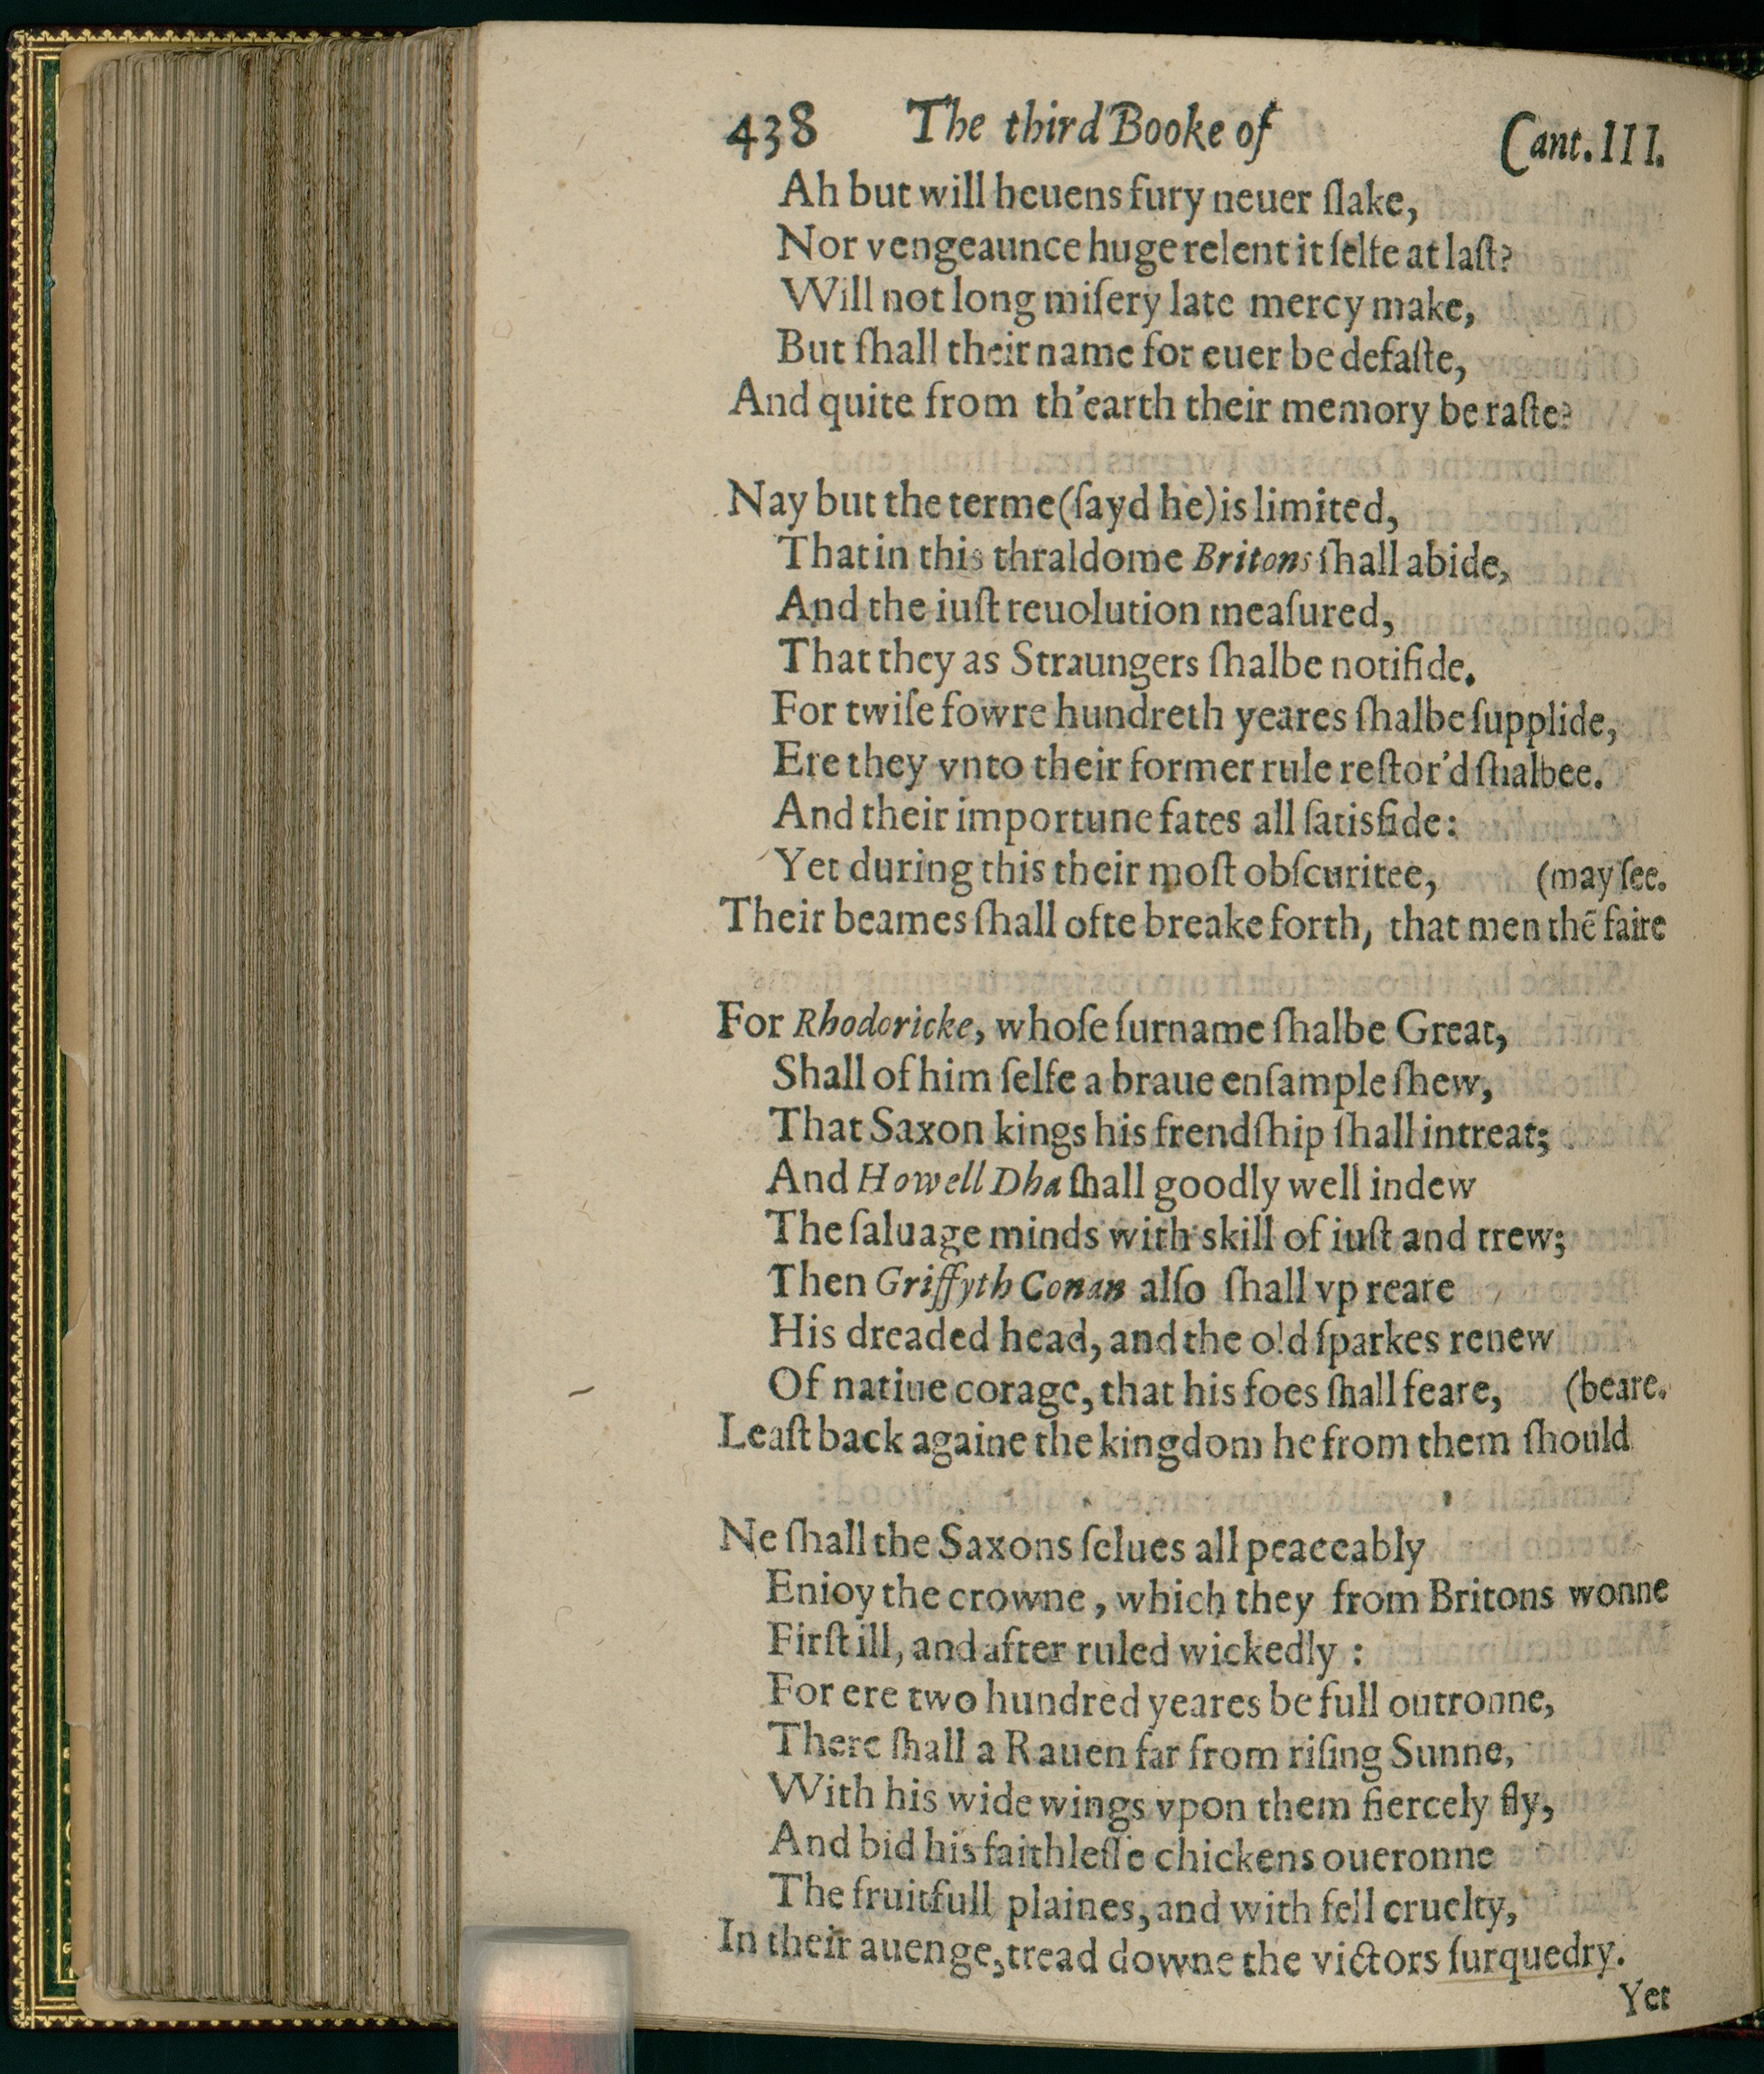 438 The third Booke of Cant. III.
Ah but will heuens fury neuer ſlake,
Nor vengeaunce huge relent it ſelfe at laſt?
Will not long miſery late mercy make,
But ſhall their name for euer be defaſte,
And quite from th'earth their memory be raſte?
Nay but the terme (ſayd he) is limited,
That in this thraldome Britons ſhall abide,
And the iuſt reuolution meaſured,
That they as Straungers ſhalbe notifide.
For twiſe fowre hundreth yeares ſhalbe ſupplide,
Ere they vnto their former rule reſtor'd ſhalbee.
And their importune fates all ſatisfide:
Yet during this their moſt obſcuritee, (may ſee.
Their beames ſhall ofte breake forth, that men thē faire
For Rhodoricke, whoſe ſurname ſhalbe Great,
Shall of him ſelfe a braue enſample ſhew,
That Saxon kings his frendſhip ſhall intreat;
And Howell Dha ſhall goodly well indew
The ſaluage minds with skill of iuſt and trew;
Then Griffyth Conan alſo ſhall vp reare
His dreaded head, and the old ſparkes renew
Of natiue corage, that his foes ſhall feare, (beare.
Leaſt back againe the kingdom he from them ſhould
Ne ſhall the Saxons ſelues all peaceably
Enioy the crowne, which they from Britons wonne
Firſt ill, and after ruled wickedly:
For ere two hundred yeares be full outronne,
There ſhall a Rauen far from riſing Sunne,
With his wide wings vpon them fiercely fly,
And bid his faithleſſe chickens oueronne
The fruitfull plaines, and with fell cruelty,
In their auenge, tread downe the victors ſurquedry.
Yet